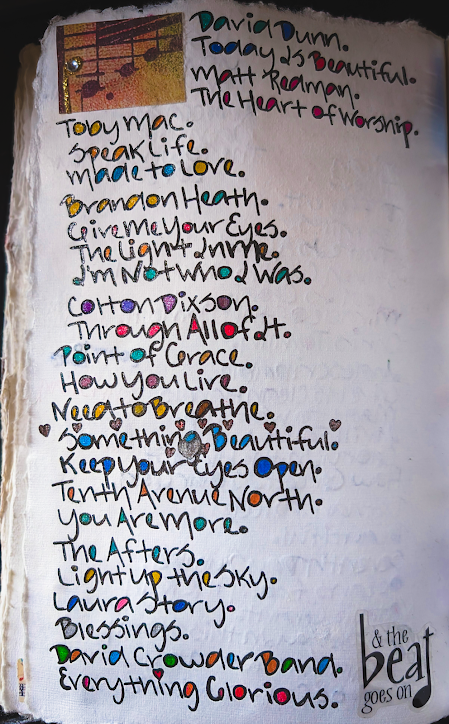 David Dunn.
Today Is Beautiful.
Matt Redman.
The Heart of Worship.
Toby Mac.
Speak Life.
Made to Love.
Brandon Heath.
Give me Your Eyes.
The Light In Me.
I'm Not Who I Was.
Colton Dixson.
Through All of It.
Point of Grace.
How You Live.
Need to Breathe.
Something Beautiful.
Keep Your Eyes Open.
Tenth Avenue North.
You Are More.
The Afters.
Light Up the Sky.
Laura Story.
Blessings.
David Crowder Band.
Everything Glorious.
& the
beat
goes on